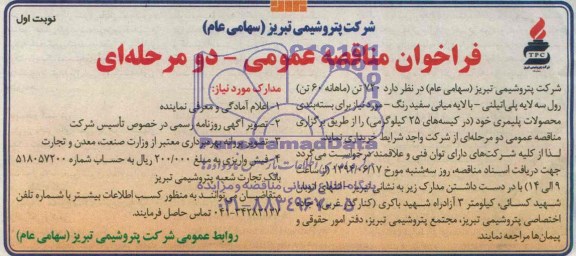 نوبت اول
شرکت پتروشیمی تبریز (سهامی عام)
فراخوان مناقصه عمومی - دو مرحله‌ای
TPC
شرکت پتروشیمی تبریز (سهامی عام) در نظر دارد ۷۲۰ تن (ماهانه ۶۰ تن)
رول سه لایه پلی‌اتیلنی - با لایه میانی سفید رنگ - مورد نیاز برای بسته‌بندی
محصولات پلیمری خود (در کیسه‌های ۲۵ کیلوگرمی) را از طریق برگزاری
مناقصه عمومی دو مرحله‌ای از شرکت واجد شرایط خریداری نماید
لذا از کلیه شرکت‌های دارای توان فنی و علاقمند درخواست می گردد
جهت دریافت اسناد مناقصه، روز سه‌شنبه مورخ ۱۳۹۴/۰۶/۱۷ (از ساعت
۹ الی ۱۴) با در دست داشتن مدارک زیر به نشانی تبریز، انتهای اتوبان
شهید کسائی، کیلومتر ۳ آزادراه شهید باکری (کنارگذر غربی)، جاده
اختصاصی پتروشیمی تبریز، مجتمع پتروشیمی تبریز، دفتر امور حقوقی و
پیمان‌ها مراجعه نمایند.
مدارک مورد نیاز:
۱- اعلام آمادگی و معرفی نماینده
۲- تصویر آگهی روزنامه رسمی در خصوص تأسیس شرکت
۳- تصویر پروانه بهره‌برداری معتبر از وزارت صنعت، معدن و تجارت
۴- فیش واریزی به مبلغ ۲۰۰/۰۰۰ ریال به حساب شماره ۵۱۸۰۵۷۲۰۰
بانک تجارت شعبه پتروشیمی تبریز
متقاضیان می توانند به منظور کسب اطلاعات بیشتر با شماره تلفن
۰۴۱-۳۴۲۸۲۱۳۷ تماس حاصل فرمایند.
روابط عمومی شرکت پتروشیمی تبریز (سهامی عام)
ParsNamadData
پایگاه اطلاع رسانی مناقصه و مزایده
۰۲۱-۸۸۳۴۹۶۷۰-۵